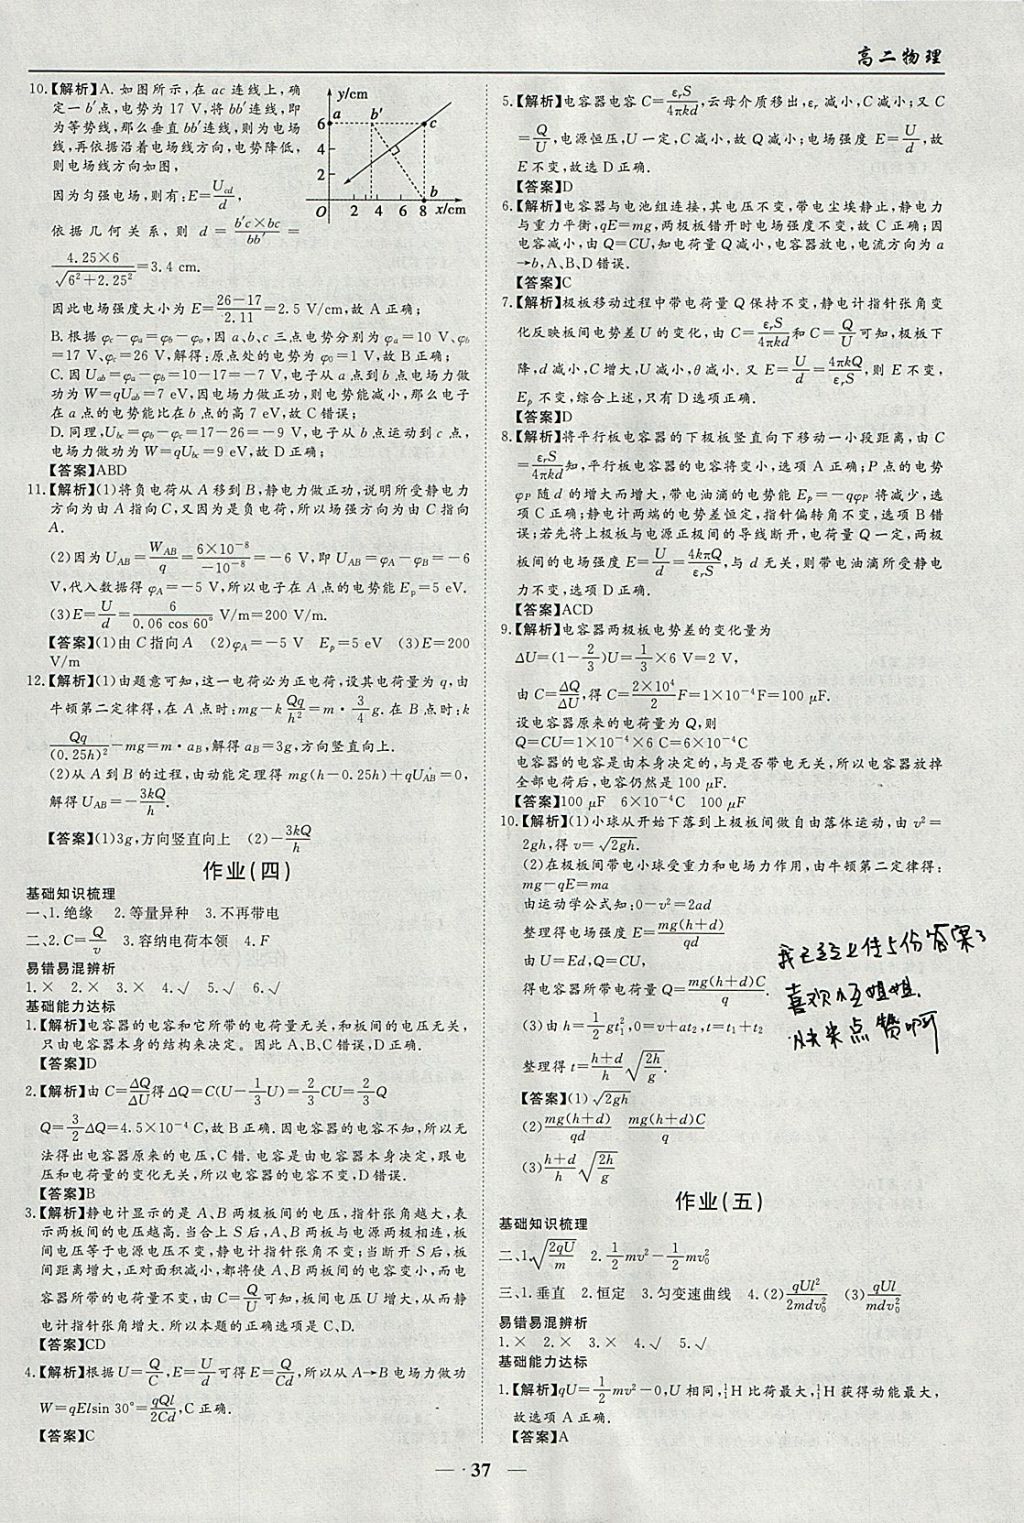 高二物理
10.【解析】A. 如图所示,在 ac 连线上,确
定一 b′点,电势为 17 V,将 bb′连线,即
为等势线,那么垂直 bb′连线,则为电场
线,再依据沿着电场线方向,电势降低,
则电场线方向如图,
因为匀强电场,则有:E=U_cd/d,
依据几何关系,则 d=(b′c×bc)/bb′=
(4.25×6)/√(6²+2.25²)=3.4 cm.
y/cm
a b′ c
6
4
2
b
O 2 4 6 8 x/cm
因此电场强度大小为 E=(26-17)/2.11=2.5 V/cm,故 A 正确;
B. 根据 φc-φa=φb-φo,因 a、b、c 三点电势分别为 φa=10 V、φb
=17 V、φc=26 V,解得:原点处的电势为 φ0=1 V,故 B 正确;
C. 因 Uab=φa-φb=10-17=-7 V,电子从 a 点到 b 点电场力做
功为 W=qUab=7 eV,因电场力做正功,则电势能减小,那么电子
在 a 点的电势能比在 b 点的高 7 eV,故 C 错误;
D. 同理,Ubc=φb-φc=17-26=-9 V,电子从 b 点运动到 c 点,
电场力做功为 W=qUbc=9 eV,故 D 正确;
【答案】ABD
11.【解析】(1)将负电荷从 A 移到 B,静电力做正功,说明所受静电力
方向为由 A 指向 C,又因为是负电荷,所以场强方向为由 C 指向
A.
(2)因为 U_AB=W_AB/q=(6×10⁻⁸)/(-10⁻⁸)=-6 V,即 U_AB=φA-φB=-6
V,代入数据得 φA=-5 V,所以电子在 A 点的电势能 Ep=5 eV.
(3)E=U/d=6/(0.06 cos 60°) V/m=200 V/m.
【答案】(1)由 C 指向 A (2)φA=-5 V Ep=5 eV (3)E=200
V/m
12.【解析】(1)由题意可知,这一电荷必为正电荷,设其电荷量为 q,由
牛顿第二定律得,在 A 点时:mg-k Qq/h²=m·3/4 g. 在 B 点时:k
Qq/(0.25h)²-mg=m·aB,解得 aB=3g,方向竖直向上.
(2)从 A 到 B 的过程,由动能定理得 mg(h-0.25h)+qU_AB=0,
解得 U_AB=-3kQ/h.
【答案】(1)3g,方向竖直向上 (2)-3kQ/h
作业(四)
基础知识梳理
一、1. 绝缘 2. 等量异种 3. 不再带电
二、2. C=Q/v 3. 容纳电荷本领 4. F
易错易混辨析
1. × 2. × 3. × 4. √ 5. √ 6. √
基础能力达标
1.【解析】电容器的电容和它所带的电荷量无关,和板间的电压无关,
只由电容器本身的结构来决定。因此 A、B、C 错误,D 正确.
【答案】D
2.【解析】由 C=ΔQ/ΔU 得 ΔQ=C(U-1/3 U)=2/3 CU=2/3 Q
Q=3/2 ΔQ=4.5×10⁻⁴ C,故 B 正确. 因电容器的电容不知,所以无
法得出电容器原来的电压,C 错. 电容是由电容器本身决定,跟电
压和电荷量的变化无关,所以电容器的电容不变,D 错误.
【答案】B
3.【解析】静电计显示的是 A、B 两极板间的电压,指针张角越大,表
示两板间的电压越高. 当合上 S 后,A、B 两板与电源两极相连,板
间电压等于电源电压不变,静电计指针张角不变;当断开 S 后,板
间距离增大,正对面积减小,都将使 A、B 两板间的电容变小,而电
容器所带的电荷量不变,由 C=Q/U 可知,板间电压 U 增大,从而静
电计指针张角增大. 所以本题的正确选项是 C、D.
【答案】CD
4.【解析】根据 U=Q/C,E=U/d 可得 E=Q/Cd,所以从 A→B 电场力做功
W=qElsin 30°=qQl/2Cd,C 正确.
【答案】C
5.【解析】电容器电容 C=εrS/4πkd,云母介质移出,εr 减小,C 减小;又 C
=Q/U,电源恒压,U 一定,C 减小,故 Q 减小;电场强度 E=U/d,故
E 不变,故选 D 正确.
【答案】D
6.【解析】电容器与电池组连接,其电压不变,带电尘埃静止,静电力
与重力平衡,qE=mg,两极板错开时电场强度不变,故 C 正确;因
电容减小,由 Q=CU,知电荷量 Q 减小,电容器放电,电流方向为 a
→b,A、B、D 错误.
【答案】C
7.【解析】极板移动过程中带电荷量 Q 保持不变,静电计指针张角变
化反映板间电势差 U 的变化,由 C=εrS/4πkd 和 C=Q/U 可知,极板下
降,d 减小,C 增大,U 减小,θ 减小. 又 E=U/d=4πkQ/εrS,则 E 不变,
Ep 不变,综合上述,只有 D 选项正确.
【答案】D
8.【解析】将平行板电容器的下极板竖直向下移动一小段距离,由 C
=εrS/4πkd 知,平行板电容器的电容将变小,选项 A 正确;P 点的电势
φP 随 d 的增大而增大,带电油滴的电势能 Ep=-qφP 将减少,选
项 C 正确;静电计两端的电势差恒定,指针偏转角不变,选项 B 错
误;若先将上极板与电源正极间的导线断开,电荷量 Q 一定,两极
板间的电场强度 E=U/d=4kπQ/εrS,与 d 无关,则带电油滴所受静电
力不变,选项 D 正确.
【答案】ACD
9.【解析】电容器两极板电势差的变化量为
ΔU=(1-2/3)U=1/3×6 V=2 V,
由 C=ΔQ/ΔU,得 C=2×10⁴/2 F=1×10⁻⁴F=100 μF.
设电容器原来的电荷量为 Q,则
Q=CU=1×10⁻⁴×6 C=6×10⁻⁴C
电容器的电容是由本身决定的,与是否带电无关,所以电容器放掉
全部电荷后,电容仍然是 100 μF.
【答案】100 μF 6×10⁻⁴C 100 μF
10.【解析】(1)小球从开始下落到上极板间做自由落体运动,由 v²=
2gh,得 v=√2gh.
(2)在极板间带电小球受重力和电场力作用,由牛顿第二定律得:
mg-qE=ma
由运动学公式知:0-v²=2ad
整理得电场强度 E=mg(h+d)/qd
由 U=Ed,Q=CU,
得电容器所带电荷量 Q=mg(h+d)C/q.
(3)由 h=1/2 gt₁²,0=v+at₂,t=t₁+t₂
整理得 t=(h+d)/h √(2h/g).
【答案】(1)√2gh
(2)mg(h+d)/qd mg(h+d)C/q
(3)(h+d)/h √(2h/g)
我已经上传5份答案了
喜欢小五姐姐,
快来点赞啊
作业(五)
基础知识梳理
二、1.√(2qU/m) 2. 1/2 mv²-1/2 mv₀²
三、1. 垂直 2. 恒定 3. 匀变速曲线 4. (2)qUl²/2mdv₀² (3)qUl/mdv₀²
易错易混辨析
1. × 2. × 3. × 4. √ 5. √
基础能力达标
1.【解析】qU=1/2 mv²-0,U 相同,¹₁H 比荷最大,¹₁H 获得动能最大,
故选项 A 正确.
【答案】A
— · 37 —